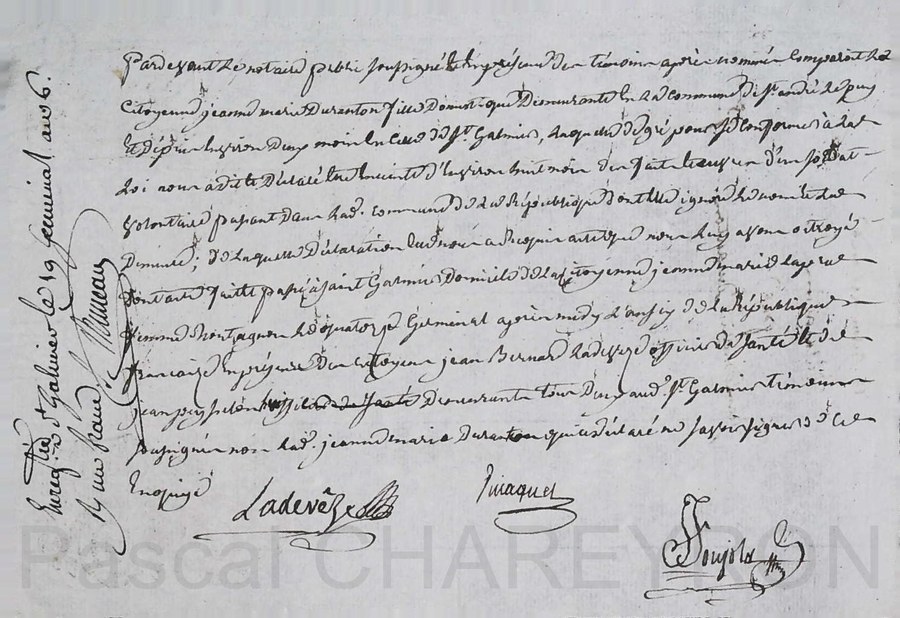 Pardevant le notaire public soussigné et en présence des témoins après nommés Comparoit la
Citoyenne jeanne marie Duranton fille Domestique Demeurante en la commune de St. andré le puy
et depuis environ Deux mois en celle de St. Galmier, laquelle de gré pour se conformer à la
Loi nous a dit et Déclaré être enceinte d'environ huit mois des faits et œuvres d'un soldat
volontaire passant dans lad. commune de la République dont elle ignore le nom et la
Demeure; de laquelle Déclaration elle nous a Requis acte que nous luy avons octroyé
Dont acte fait et passé à saint Galmier Domicile de la Citoyenne jeanne marie
femme Montagnon le quatorze Germinal après midy L'an six de la République
francaise En présence des citoyens jean Bernard Ladeveze officier de santé et de
jean officier de santé Demeurants tous Deux aud. St. Galmier témoins
soussignés non lad. jeanne marie Duranton qui a déclaré ne savoir signer de ce
Enquise
Ladevèze
Pascal CHAREYRON
Enregistré à St Galmier le 19 germinal an 6.
un franc